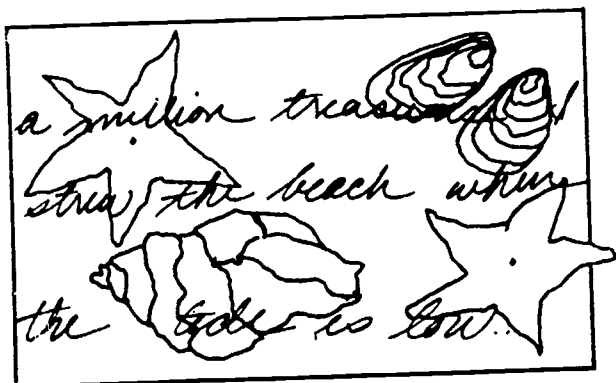 a million treasures
strew the beach when
the tide is low..